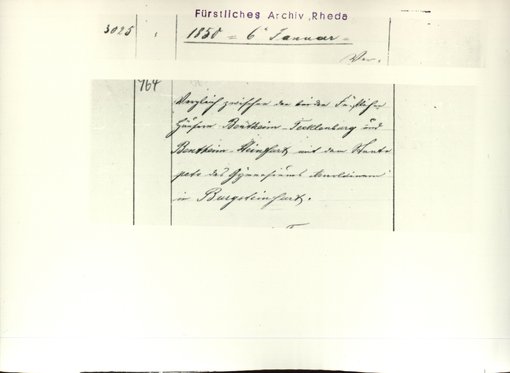 Fürstliches Archiv, Rheda
3025
1850 = 6ᵗ Januar =
Ver.
764
Vergleich zwischen den beiden Fürstlichen
Häusern Bentheim-Tecklenburg und
Bentheim-Steinfurt mit dem Staate
pcto des Gymnasiums Arnoldinum
in Burgsteinfurt.